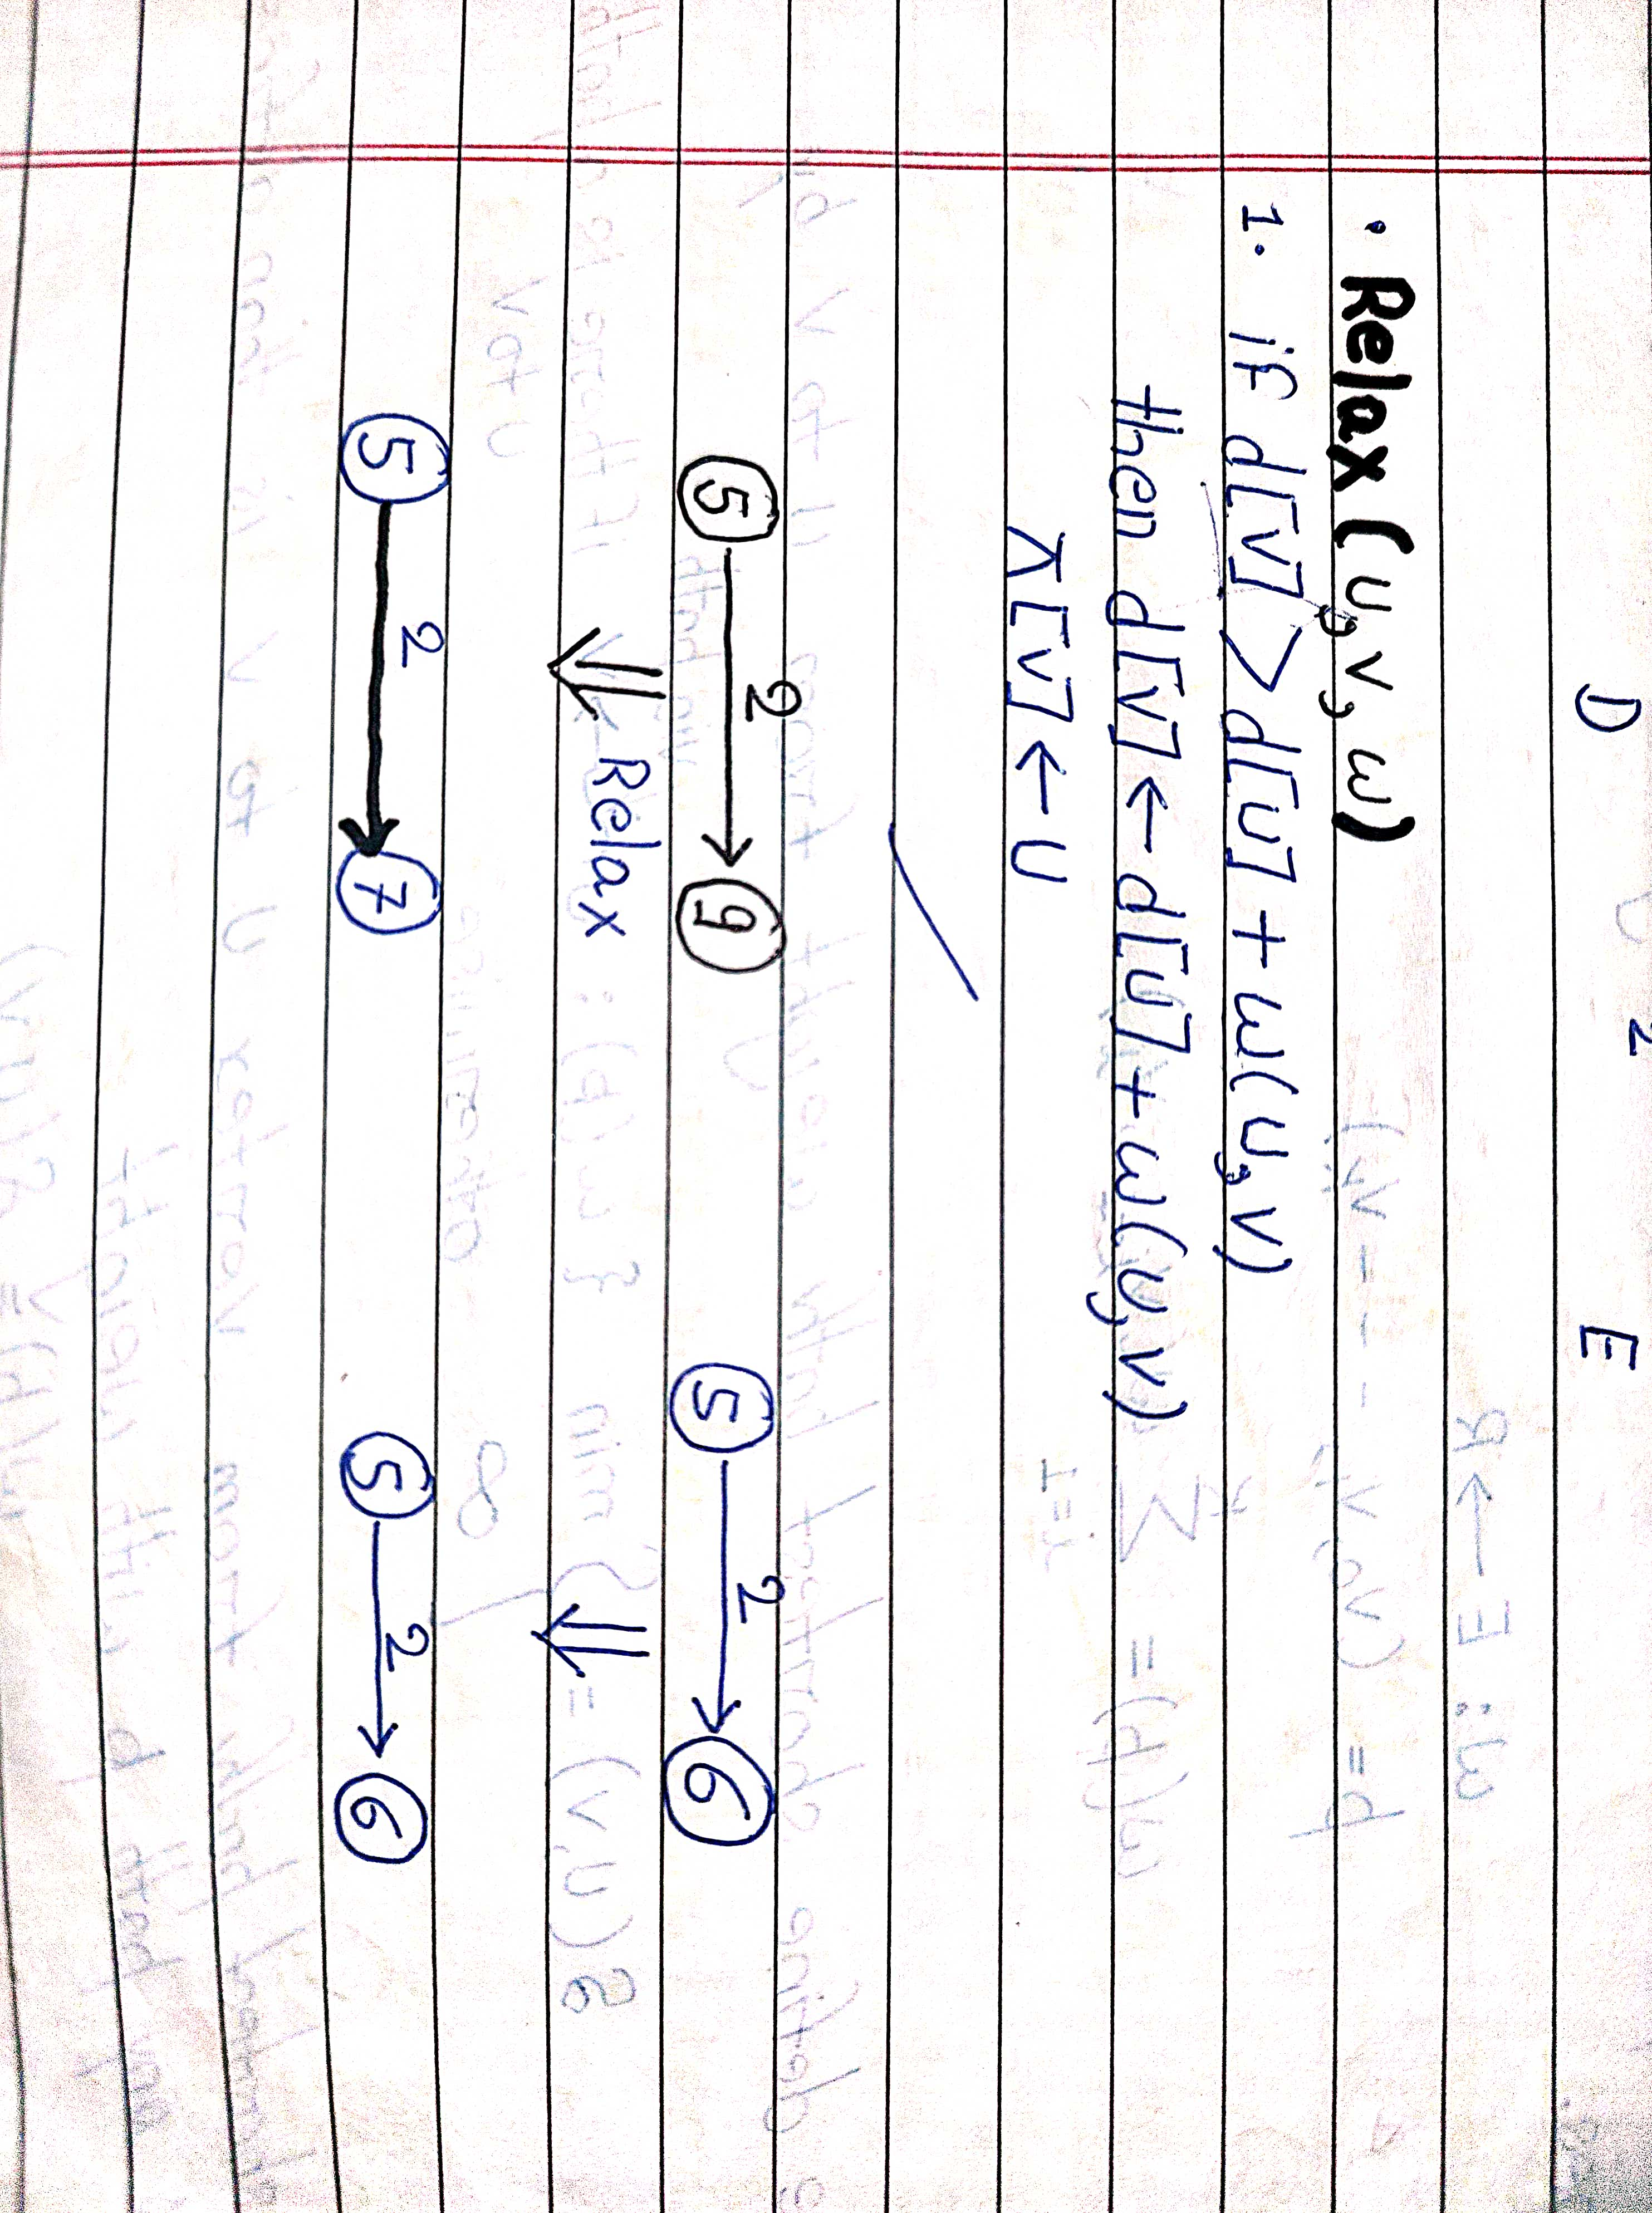 2
D E
• Relax (u, v, w)
1. if d[v] > d[u] + w(u, v)
then d[v] ← d[u] + w(u, v)
π[v] ← u
5 2 9 5 2 6
⇓ Relax ⇓
5 2 7 5 2 6